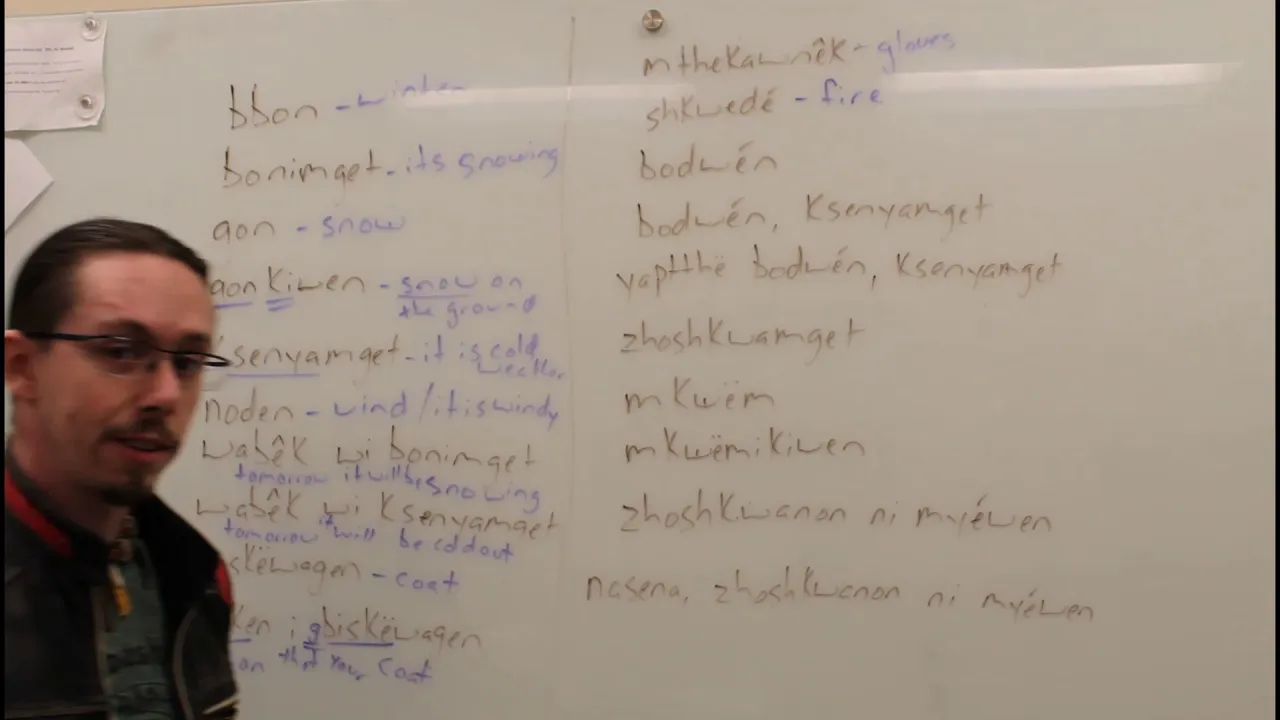 bbon - winter
bonimget - its snowing
gon - snow
gonkiwen - snow on
the ground
senyamget - it is cold
weather
noden - wind / it is windy
wabêk wi bonimget
tomorrow it will be snowing
wabêk wi ksenyamget
tomorrow it will be cold out
skëwagen - coat
ken i gbiskëwagen
on that your coat
mthekawnêk - gloves
shkwedé - fire
bodwén
bodwén, ksenyamget
yaptthë bodwén, ksenyamget
zhoshkwamget
mkwëm
mkwëmikiwen
zhoshkwanon ni myéwen
nasena, zhoshkwanon ni myéwen